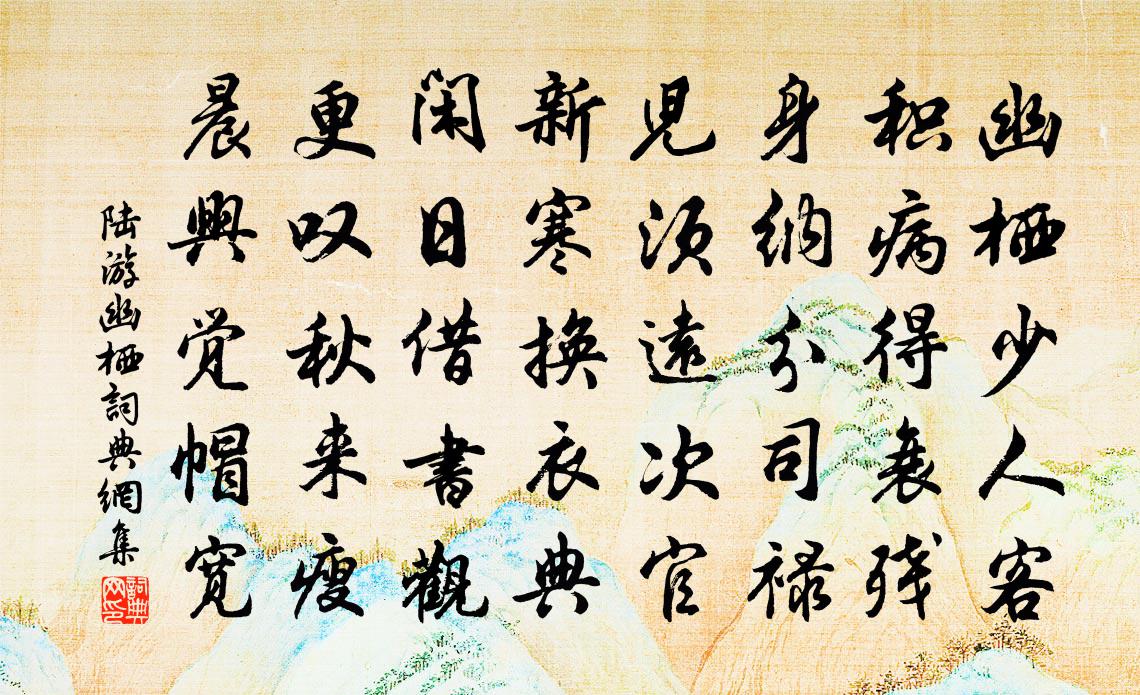 幽栖少人客
积病得衰残
身纳分司禄
児须遠次官
新寒换衣典
闲日借書觀
更叹秋来瘦
晨興觉帽宽
陆游幽栖詞典網集
詞典网印